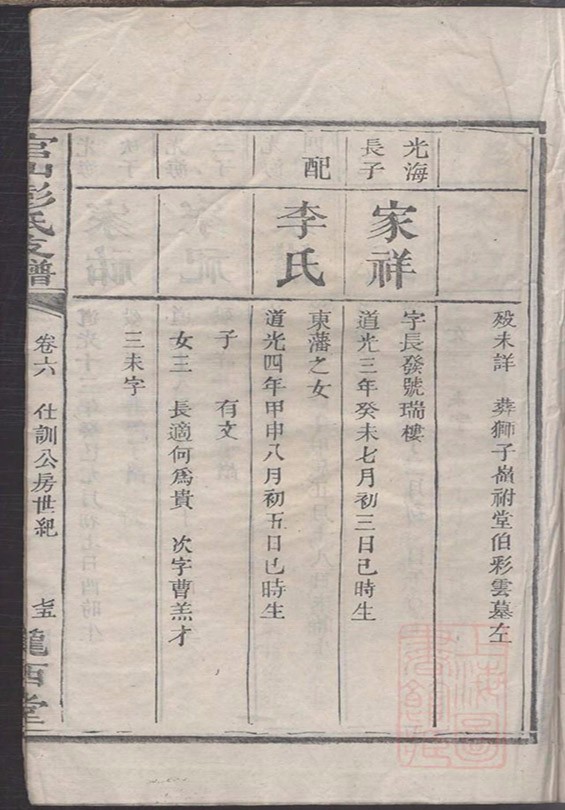 歿未詳　葬獅子嶺祔堂伯彩雲墓左
光海
長子
家祥
字長發號瑞樓
道光三年癸未七月初三日巳時生
配
李氏
東藩之女
道光四年甲申八月初五日巳時生
子　有文
女三　長適何爲貴　次字曹羔才
三未字
官山彭氏支譜
卷六　仕訓公房世紀
隴西堂
上海圖
書館藏